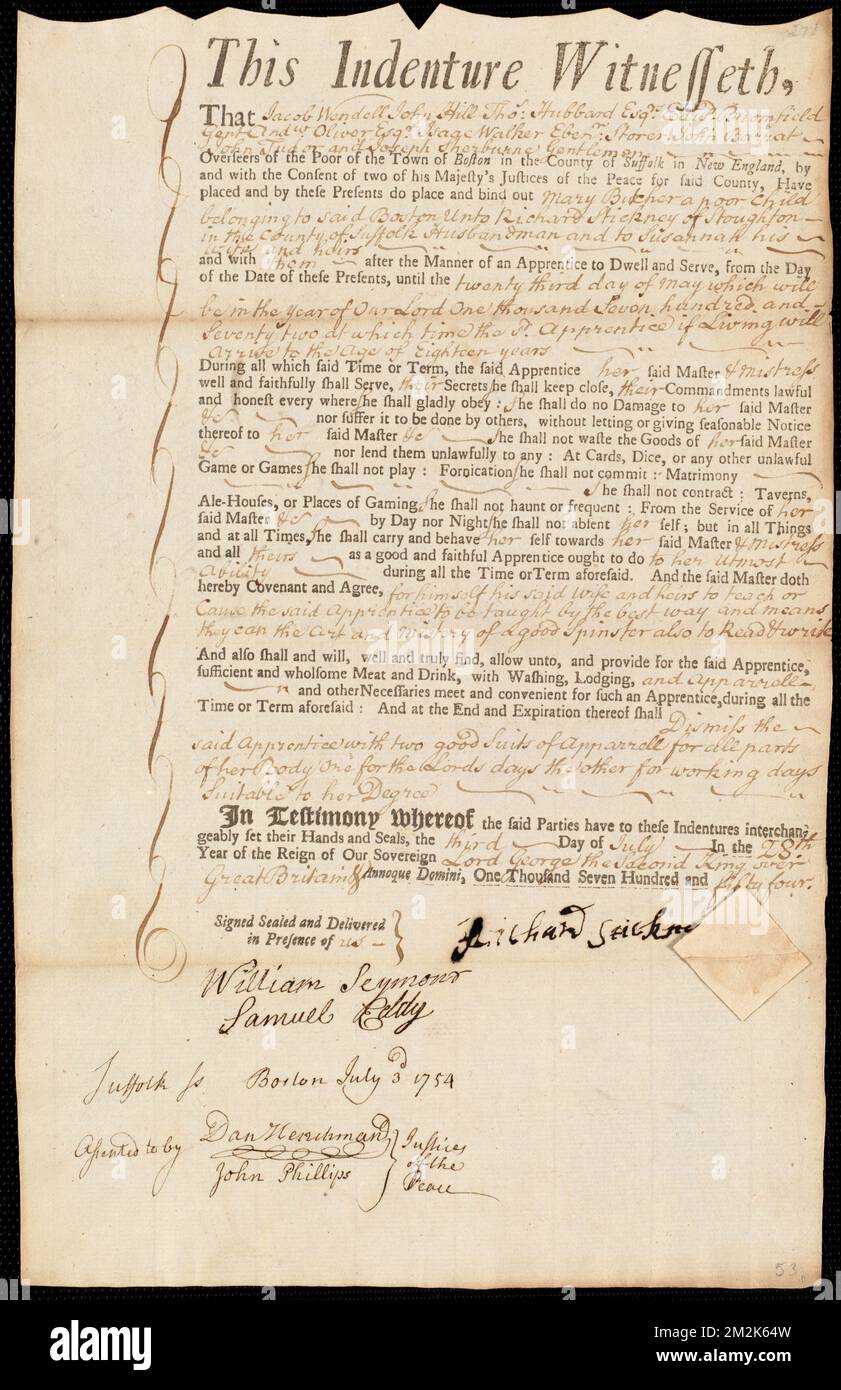 This Indenture Witnesseth,
That Jacob Wendell John Hill Thos. Hubbard Esqrs. Edwd. Bromfield
Gent. Andw. Oliver Esqr. Isaac Walker Ebenr. Storer John Barrat
John Tudor and Joseph Sherburne Gentlemen
Overseers of the Poor of the Town of Boston in the County of Suffolk in New England, by
and with the Consent of two of his Majesty's Justices of the Peace for said County, Have
placed and by these Presents do place and bind out Mary Butcher a poor Child
belonging to said Boston Unto Richard Stickney of Stoughton
in the County of Suffolk Husbandman and to Susannah his
Wife and heirs
and with them after the Manner of an Apprentice to Dwell and Serve, from the Day
of the Date of these Presents, until the twenty third day of May which will
be in the year of Our Lord One thousand Seven hundred and
Seventy two at which time the sd. Apprentice if Living will
arrive to the Age of Eighteen years
During all which said Time or Term, the said Apprentice her said Master & mistress
well and faithfully shall Serve, their Secrets she shall keep close, their Commandments lawful
and honest every where she shall gladly obey: She shall do no Damage to her said Master
&c nor suffer it to be done by others, without letting or giving seasonable Notice
thereof to her said Master &c She shall not waste the Goods of her said Master
&c nor lend them unlawfully to any: At Cards, Dice, or any other unlawful
Game or Games she shall not play: Fornication she shall not commit: Matrimony
She shall not contract: Taverns,
Ale-Houses, or Places of Gaming she shall not haunt or frequent: From the Service of her
said Master &c by Day nor Night she shall not absent her self; but in all Things
and at all Times, she shall carry and behave her self towards her said Master & mistress
and all theirs as a good and faithful Apprentice ought to do to her Utmost
Ability during all the Time or Term aforesaid. And the said Master doth
hereby Covenant and Agree, for himself his said wife and heirs to teach or
Cause the said Apprentice to be taught by the best way and means
they can the Art and Mistery of a good Spinster also to Read & write
And also shall and will, well and truly find, allow unto, and provide for the said Apprentice,
sufficient and wholsome Meat and Drink, with Washing, Lodging, and Apparrell
and other Necessaries meet and convenient for such an Apprentice, during all the
Time or Term aforesaid: And at the End and Expiration thereof shall Dismiss the
said Apprentice with two good Suits of Apparrell for all parts
of her Body One for the Lords days the other for working days
Suitable to her Degree
In Testimony whereof the said Parties have to these Indentures interchan-
geably set their Hands and Seals, the third Day of July In the 28th
Year of the Reign of Our Sovereign Lord George the Second King over
Great Britain & Annoque Domini, One Thousand Seven Hundred and fifty four.
Signed Sealed and Delivered
in Presence of us
Richard Stickn
William Seymour
Samuel Eddy
Suffolk ss Boston July 3d 1754
Assented to by Dan Henchman
John Phillips
Justices
of the
Peace
53
alamy
Image ID: 2M2K64W
www.alamy.com